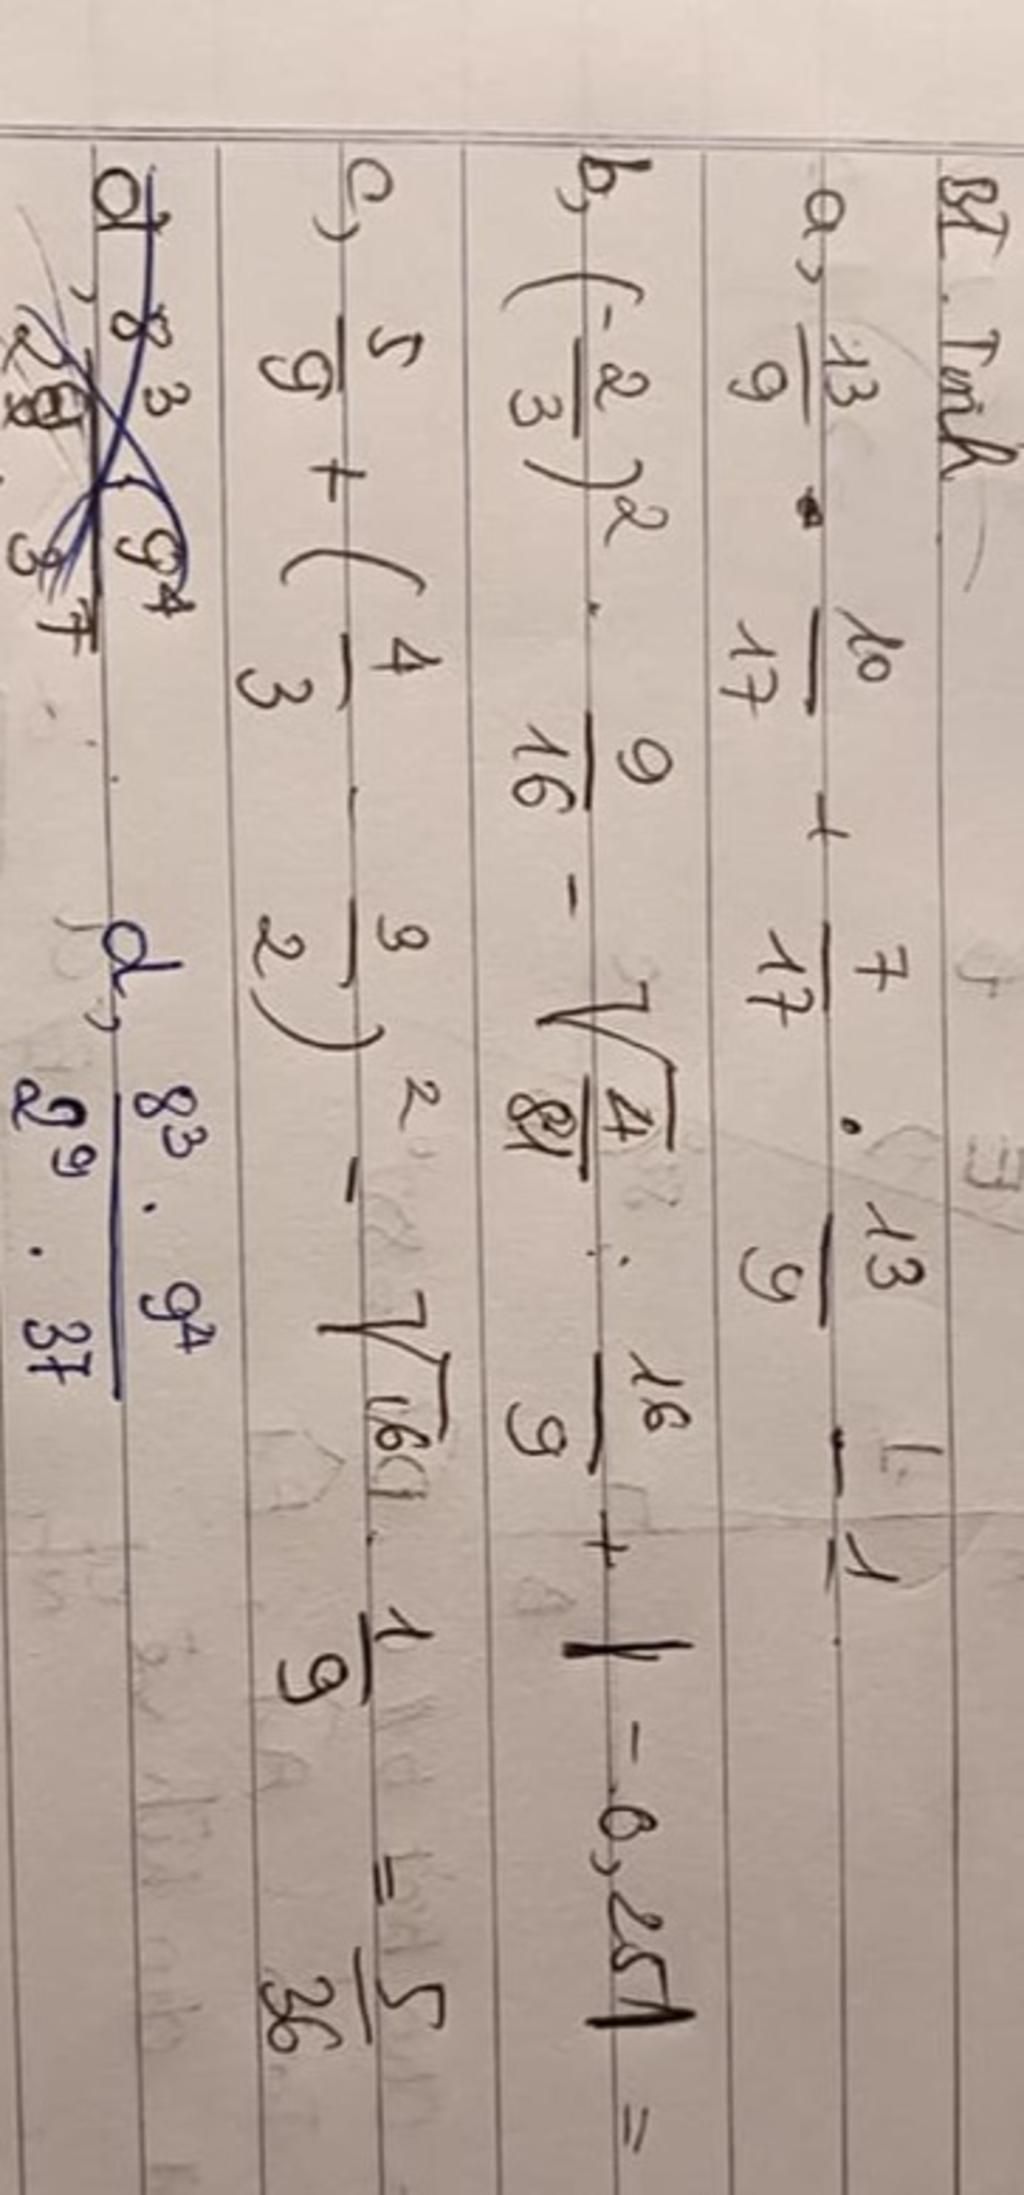 BT. Tính
a, 13/9 . 10/17 + 7/17 . 13/9 - 1
b, (-2/3)² . 9/16 - √4/81 : 16/9 + |-0,25| =
c, 5/9 + (4/3 - 3/2)² - √16 . 1/9 = 5/36
d, 8³ . 9⁴ / 2⁹ . 3⁷